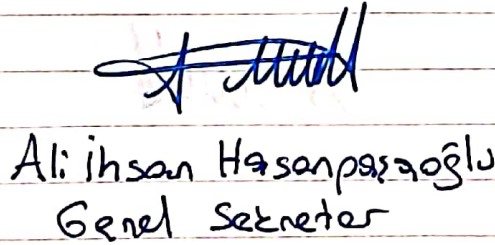 Ali ihsan Hasanpaşaoğlu
Genel Sekreter